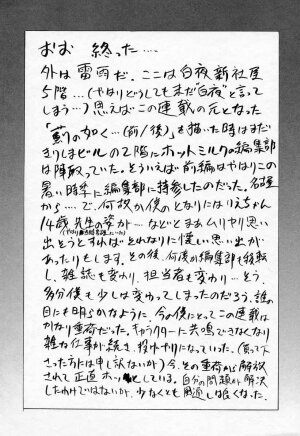 おお 終った‥‥
外は雷雨だ。ここは白夜新社屋
5階…(やはりどうしてもまだ"白夜"と言って
しまう…)思えばこの連載の元となった
「薊の如く…(前/後)」を描いた時はまだ
きりしまビルの2階にホットミルクの編集部
は陣取っていた。そういえば前編はやはりこの
暑い時季に編集部に持参したのだった。名古屋
から…で、何故か僕のとなりにはりえちゃん
14歳先生の姿が…などとまあムリヤリ思い
出そうとすればそれなりに懐しい思い出が
あったりもします。その後、何度か編集部も移転
し、雑誌も変わり、担当者も変わり…そう、
多分僕も少しは変わってしまったのだろう。誰の
目にも明らかなように、今の僕にとってこの連載は
かなり重荷だった。キャラクターに共鳴できなくなり
雑な仕事が続き、投げやりになっていった。(買って下
さった方には申し訳ないが)今、その重荷から解放
されて正直ホッとしている。自分の問題が解決
したわけではないが、少なくとも